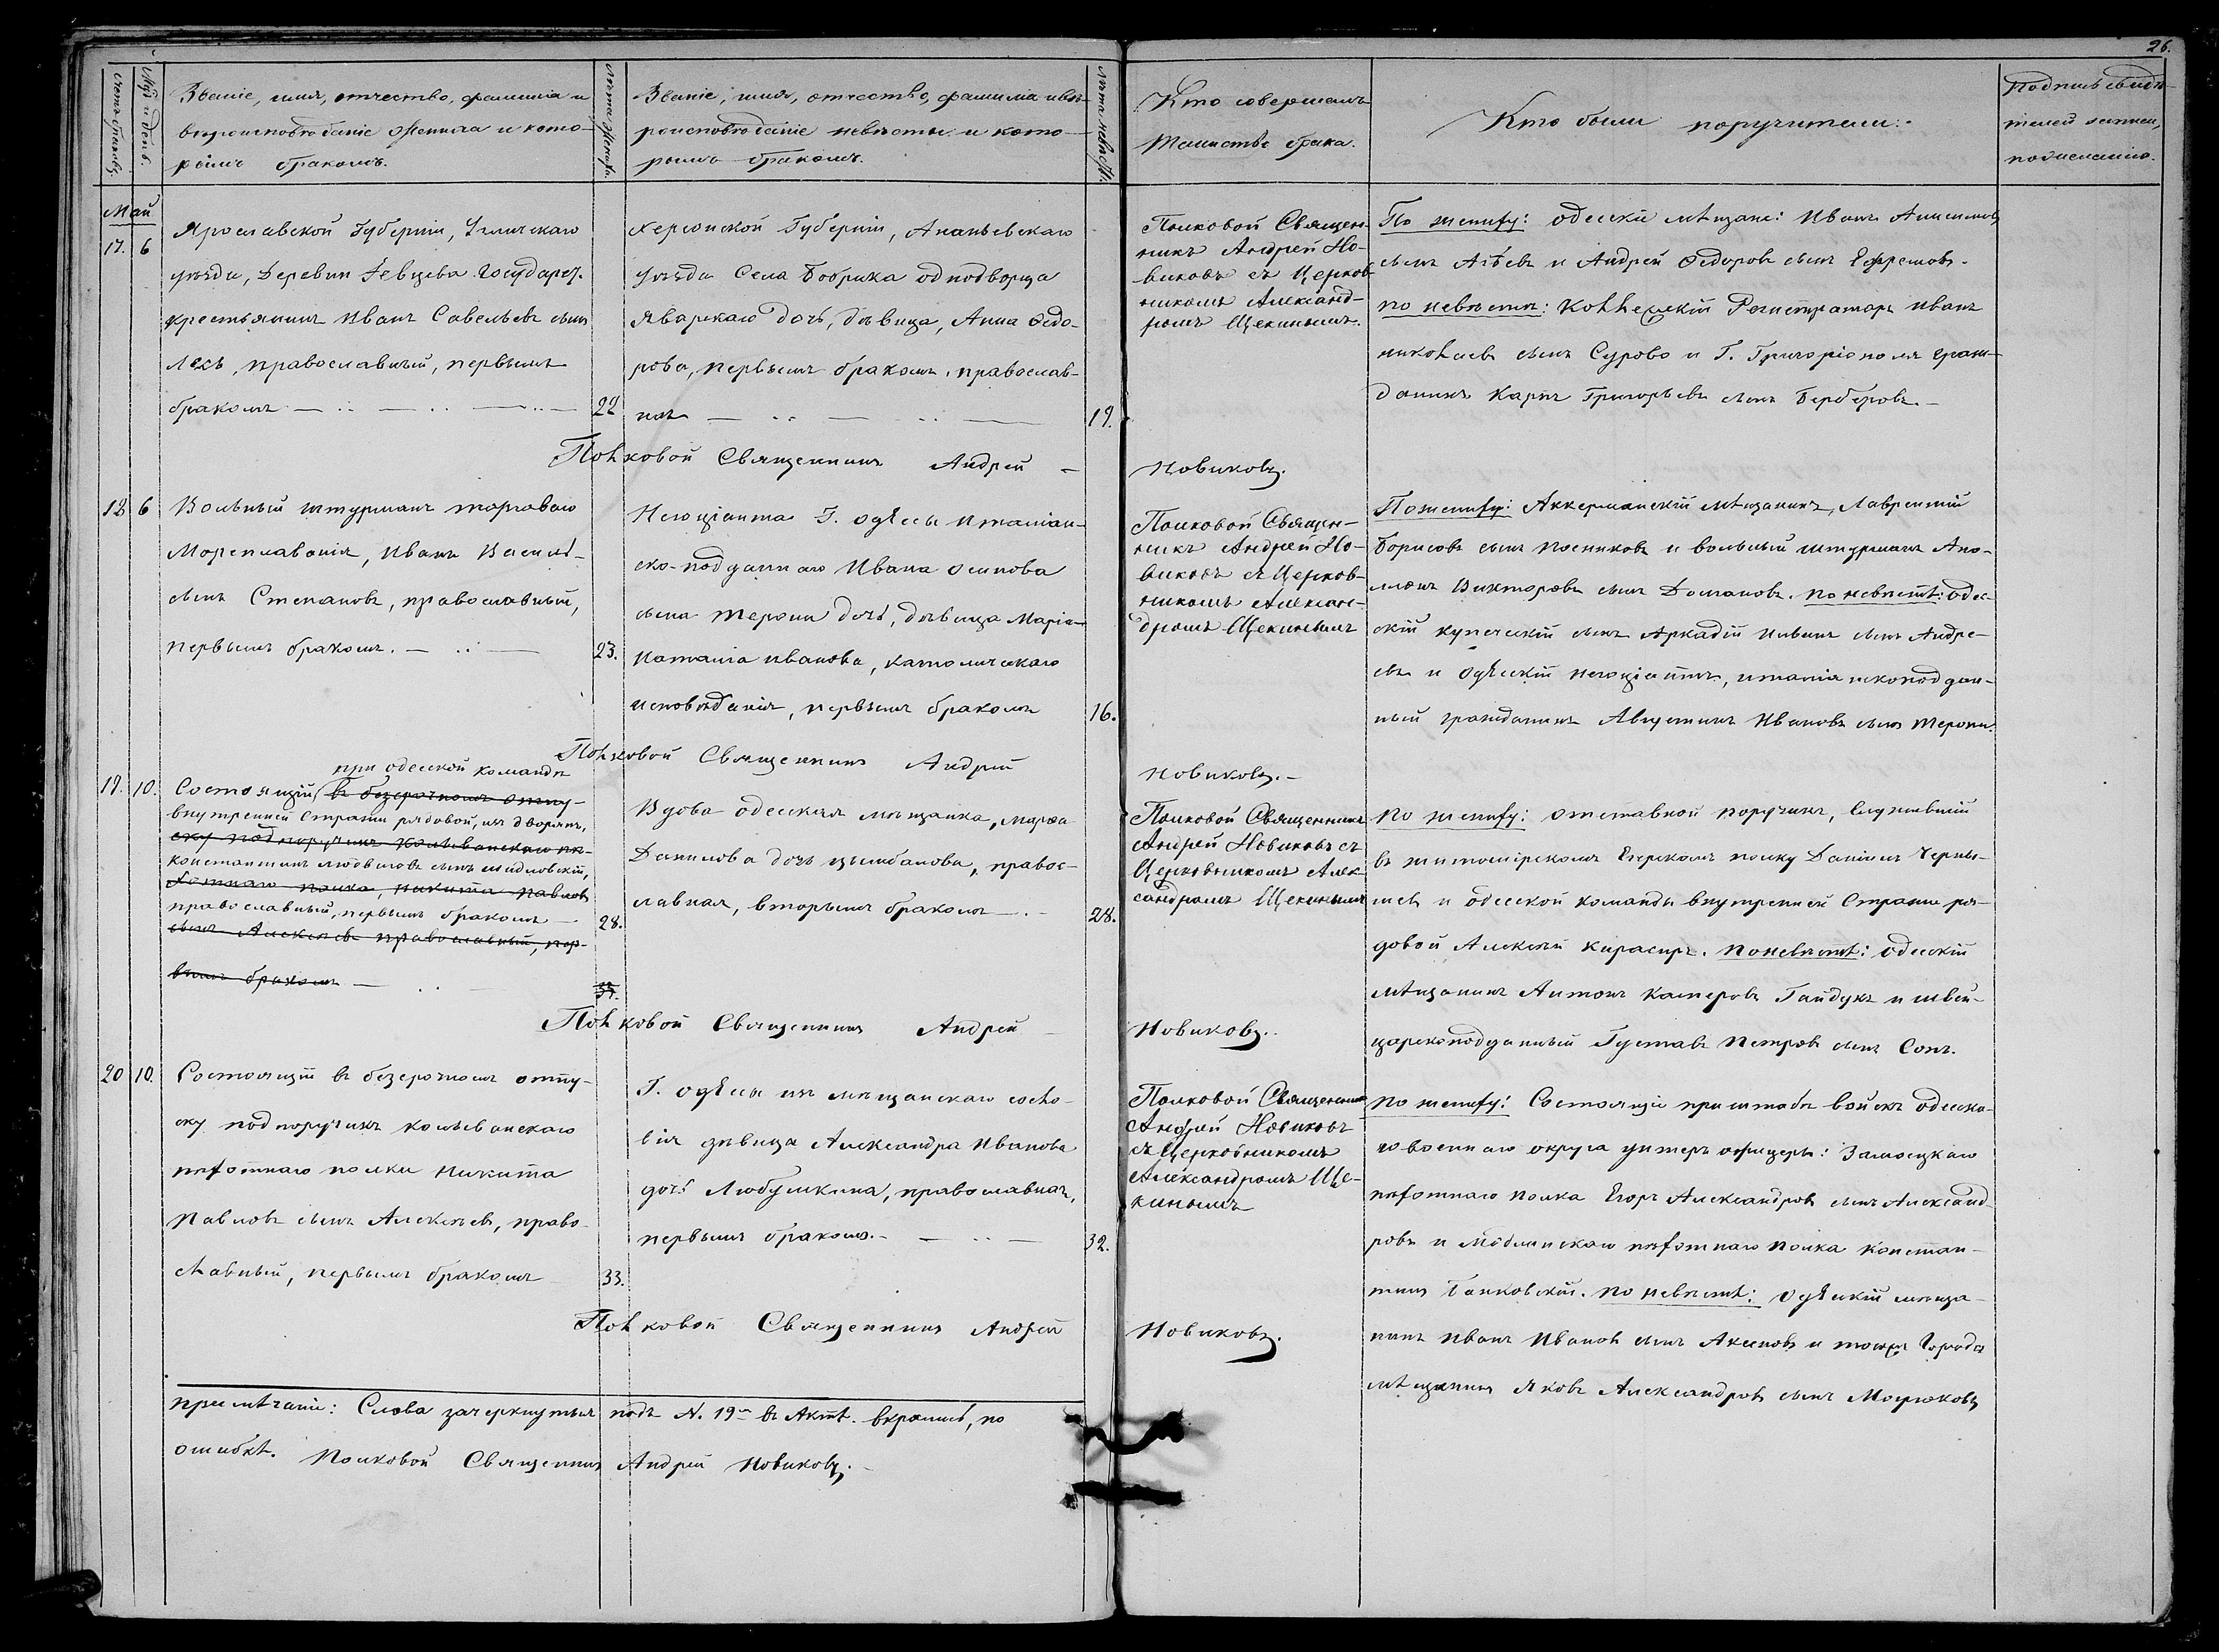 26.
Счетъ браковъ.
Мѣс. и день.
Званіе, имя, отчество, фамилія и
вѣроисповѣданіе жениха и кото-
рымъ бракомъ.
Лѣта жениха.
Званіе, имя, отчество, фамилія и вѣ-
роисповѣданіе невѣсты и кото-
рымъ бракомъ.
Лѣта невѣсты.
Кто совершалъ
таинство брака.
Кто были поручители.
Подпись свидѣ-
телей записи,
по желанію.
Май
17. 6
Ярославской Губерніи, Угличскаго
уѣзда, Деревни Государст.
крестьянинъ Иванъ Савельевъ сынъ
православный, первымъ
бракомъ
22
Херсонской Губерніи, Ананьевскаго
уѣзда Села Бобрика однодворца
дочь, дѣвица, Анна Ѳедо-
рова, первымъ бракомъ, православ-
ная
19.
Полковой Священ-
никъ Андрей Но-
виковъ съ Церков-
никомъ Александ-
ромъ Щекинымъ.
По жениху: одесскіе мѣщане: Иванъ Анисимовъ
сынъ и Андрей Ѳедоровъ сынъ Ефремовъ.
по невѣстѣ: Коллежскій Регистраторъ Иванъ
Николаевъ сынъ Сурово и Г. Григоріополя граж-
данинъ Карпъ Григорьевъ сынъ Берберовъ.
Полковой Священникъ Андрей Новиковъ.
18 6
Вольный штурманъ торговаго
Мореплаванія, Иванъ Василь-
сынъ Степановъ, православный,
первымъ бракомъ.
23.
Негоціанта Г. Одессы Италіан-
ско-подданнаго Ивана Осипова
сына Терони дочь, дѣвица Марія-
Наталія Иванова, католическаго
исповѣданія, первымъ бракомъ
16.
Полковой Священ-
никъ Андрей Но-
виковъ съ Церков-
никомъ Алексан-
дромъ Щекинымъ
По жениху: Аккерманскій мѣщанинъ, Лаврентій
Борисовъ сынъ Посниковъ и вольный штурманъ Апо-
лонъ Викторовъ сынъ Домановъ. по невѣстѣ: одес-
скій купеческій сынъ Аркадій Ильинъ сынъ Андре-
евъ и Одесскій негоціантъ, италіянскоподдан-
ный гражданинъ Августинъ Ивановъ сынъ Терони.
Полковой Священникъ Андрей Новиковъ.
19. 10.
при одесской командѣ
Состоящій въ безсрочномъ отпу-
внутренней Стражи рядовой, изъ дворянъ,
ску подпоручикъ Колыванскаго пѣ-
Константинъ Людвиговъ сынъ Шидловскій,
хотнаго полка, Никита Павловъ
православный, первымъ бракомъ
28.
сынъ Алексѣевъ православный, пер-
вымъ бракомъ
33.
Вдова одесская мѣщанка, Марѳа
Данилова дочь Цымбалова, правос-
лавная, вторымъ бракомъ
28.
Полковой Священникъ
Андрей Новиковъ съ
Церковникомъ Алек-
сандромъ Щекинымъ
По жениху: отставной поручикъ, служившій
въ Житомірскомъ Егерскомъ полку Даніилъ Черны-
шевъ и одесской команды внутренней Стражи ря-
довой Алексѣй Кирасиръ. По невѣстѣ: одесскій
мѣщанинъ Антонъ Гайдукъ и швей-
царскоподданный Густавъ Петровъ сынъ Сонъ.
Полковой Священникъ Андрей Новиковъ.
20 10.
Состоящій въ безсрочномъ отпу-
ску подпоручикъ Колыванскаго
пѣхотнаго полка Никита
Павловъ сынъ Алексѣевъ, право-
славный, первымъ бракомъ
33.
Г. Одессы изъ мѣщанскаго сосло-
вія дѣвица Александра Иванова
дочь Любушкина, православная,
первымъ бракомъ.
32.
Полковой Священникъ
Андрей Новиковъ
съ Церковникомъ
Александромъ Ще-
кинымъ
По жениху: Состоящіе при штабѣ войскъ Одесска-
го военнаго округа унтеръ офицеры: Замосцкаго
пѣхотнаго полка Егоръ Александровъ сынъ Александ-
ровъ и Модлинскаго пѣхотнаго полка Констан-
тинъ Банковскій. По невѣстѣ: Одесскій мѣща-
нинъ Иванъ Ивановъ сынъ Аксеновъ и тогожъ города
мѣщанинъ Яковъ Александровъ сынъ
Полковой Священникъ Андрей Новиковъ.
Примѣчаніе: Слова зачеркнутыя подъ N. 19м въ Актѣ вкрались, по
ошибкѣ. Полковой Священникъ Андрей Новиковъ.